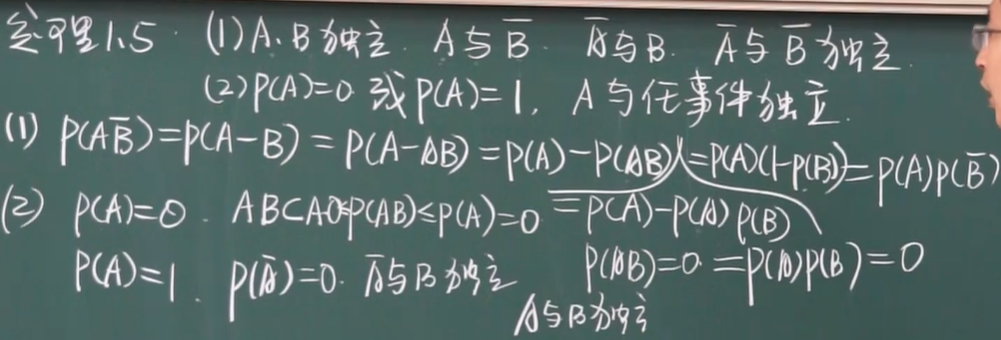 定理1.5 (1) A.B独立. A与B̅. A̅与B. A̅与B̅独立.
(2) P(A)=0 或 P(A)=1, A与任事件独立.
(1) P(AB̅)=P(A-B)=P(A-AB)=P(A)-P(AB)=P(A)(1-P(B))=P(A)P(B̅)
=P(A)-P(A)P(B)
(2) P(A)=0. AB⊂A 0≤P(AB)≤P(A)=0
P(AB)=0=P(A)P(B)=0
P(A)=1. P(A̅)=0. A̅与B独立
A与B独立